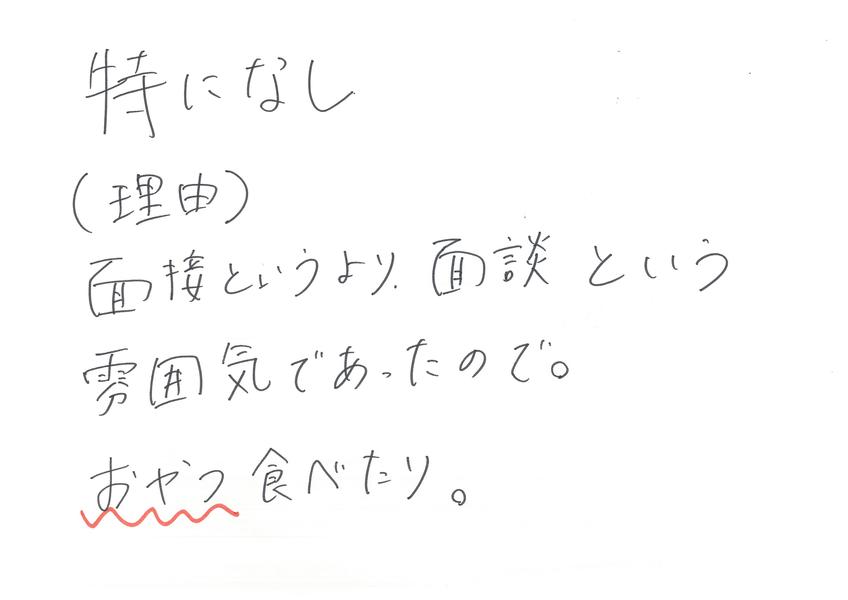 特になし
(理由)
面接というより、面談という
雰囲気であったので。
おやつ食べたり。